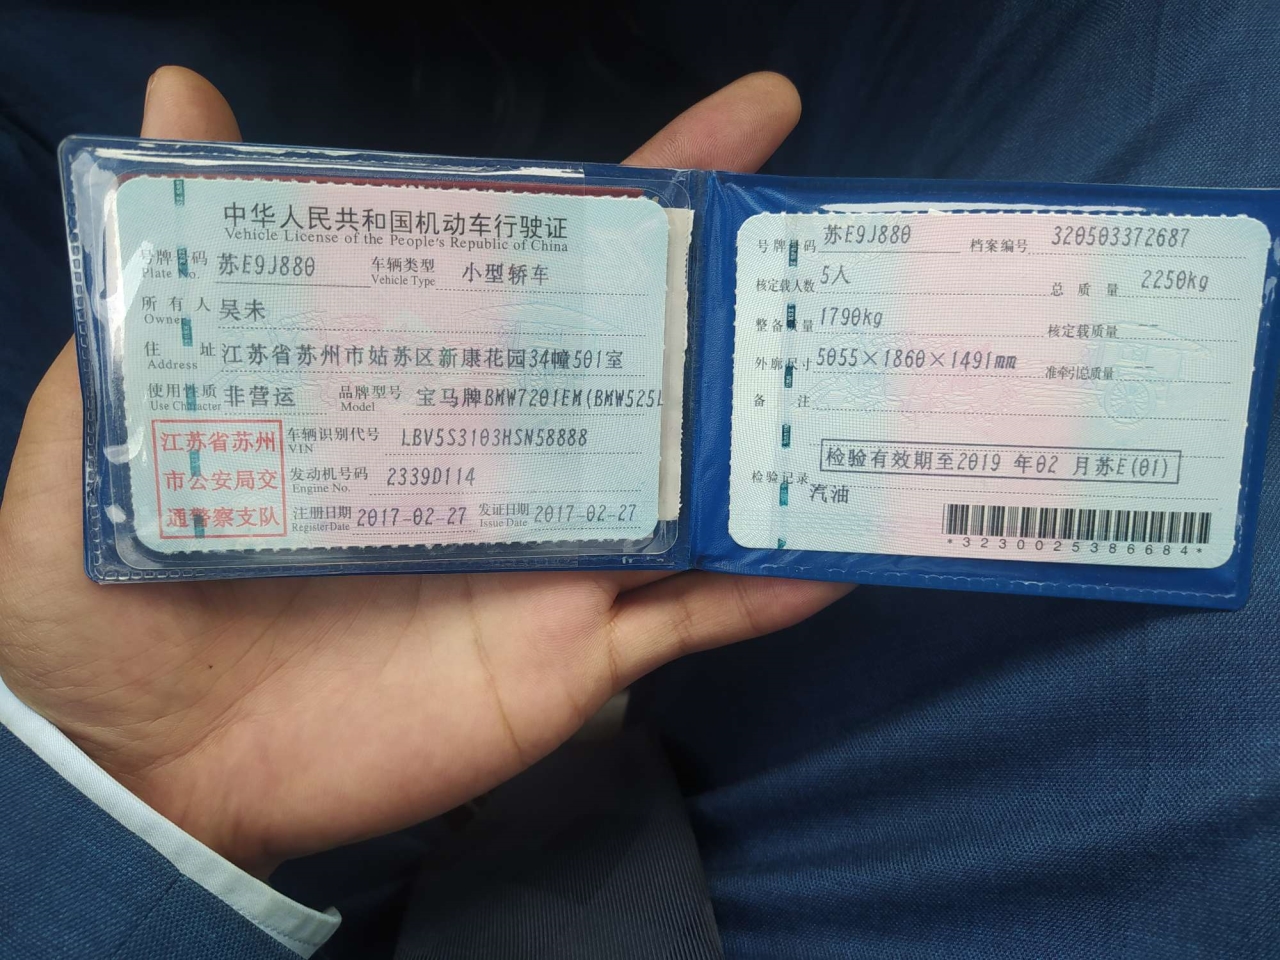 中华人民共和国机动车行驶证
Vehicle License of the People's Republic of China
号牌号码 苏E9J880 车辆类型 小型轿车
Plate No. Vehicle Type
所有人 吴未
Owner
住址 江苏省苏州市姑苏区新康花园34幢501室
Address
使用性质 非营运 品牌型号 宝马牌BMW7201EM(BMW525L
Use Character Model
江苏省苏州
市公安局交
通警察支队
车辆识别代号 LBV5S3103HSN58888
VIN
发动机号码 2339D114
Engine No.
注册日期 2017-02-27 发证日期 2017-02-27
Register Date Issue Date
号牌号码 苏E9J880 档案编号 320503372687
核定载人数 5人 总质量 2250kg
整备质量 1790kg 核定载质量 --
外廓尺寸 5055×1860×1491mm 准牵引总质量 --
备注
检验有效期至2019 年02 月苏E(01)
检验记录
汽油
*3230025386684*